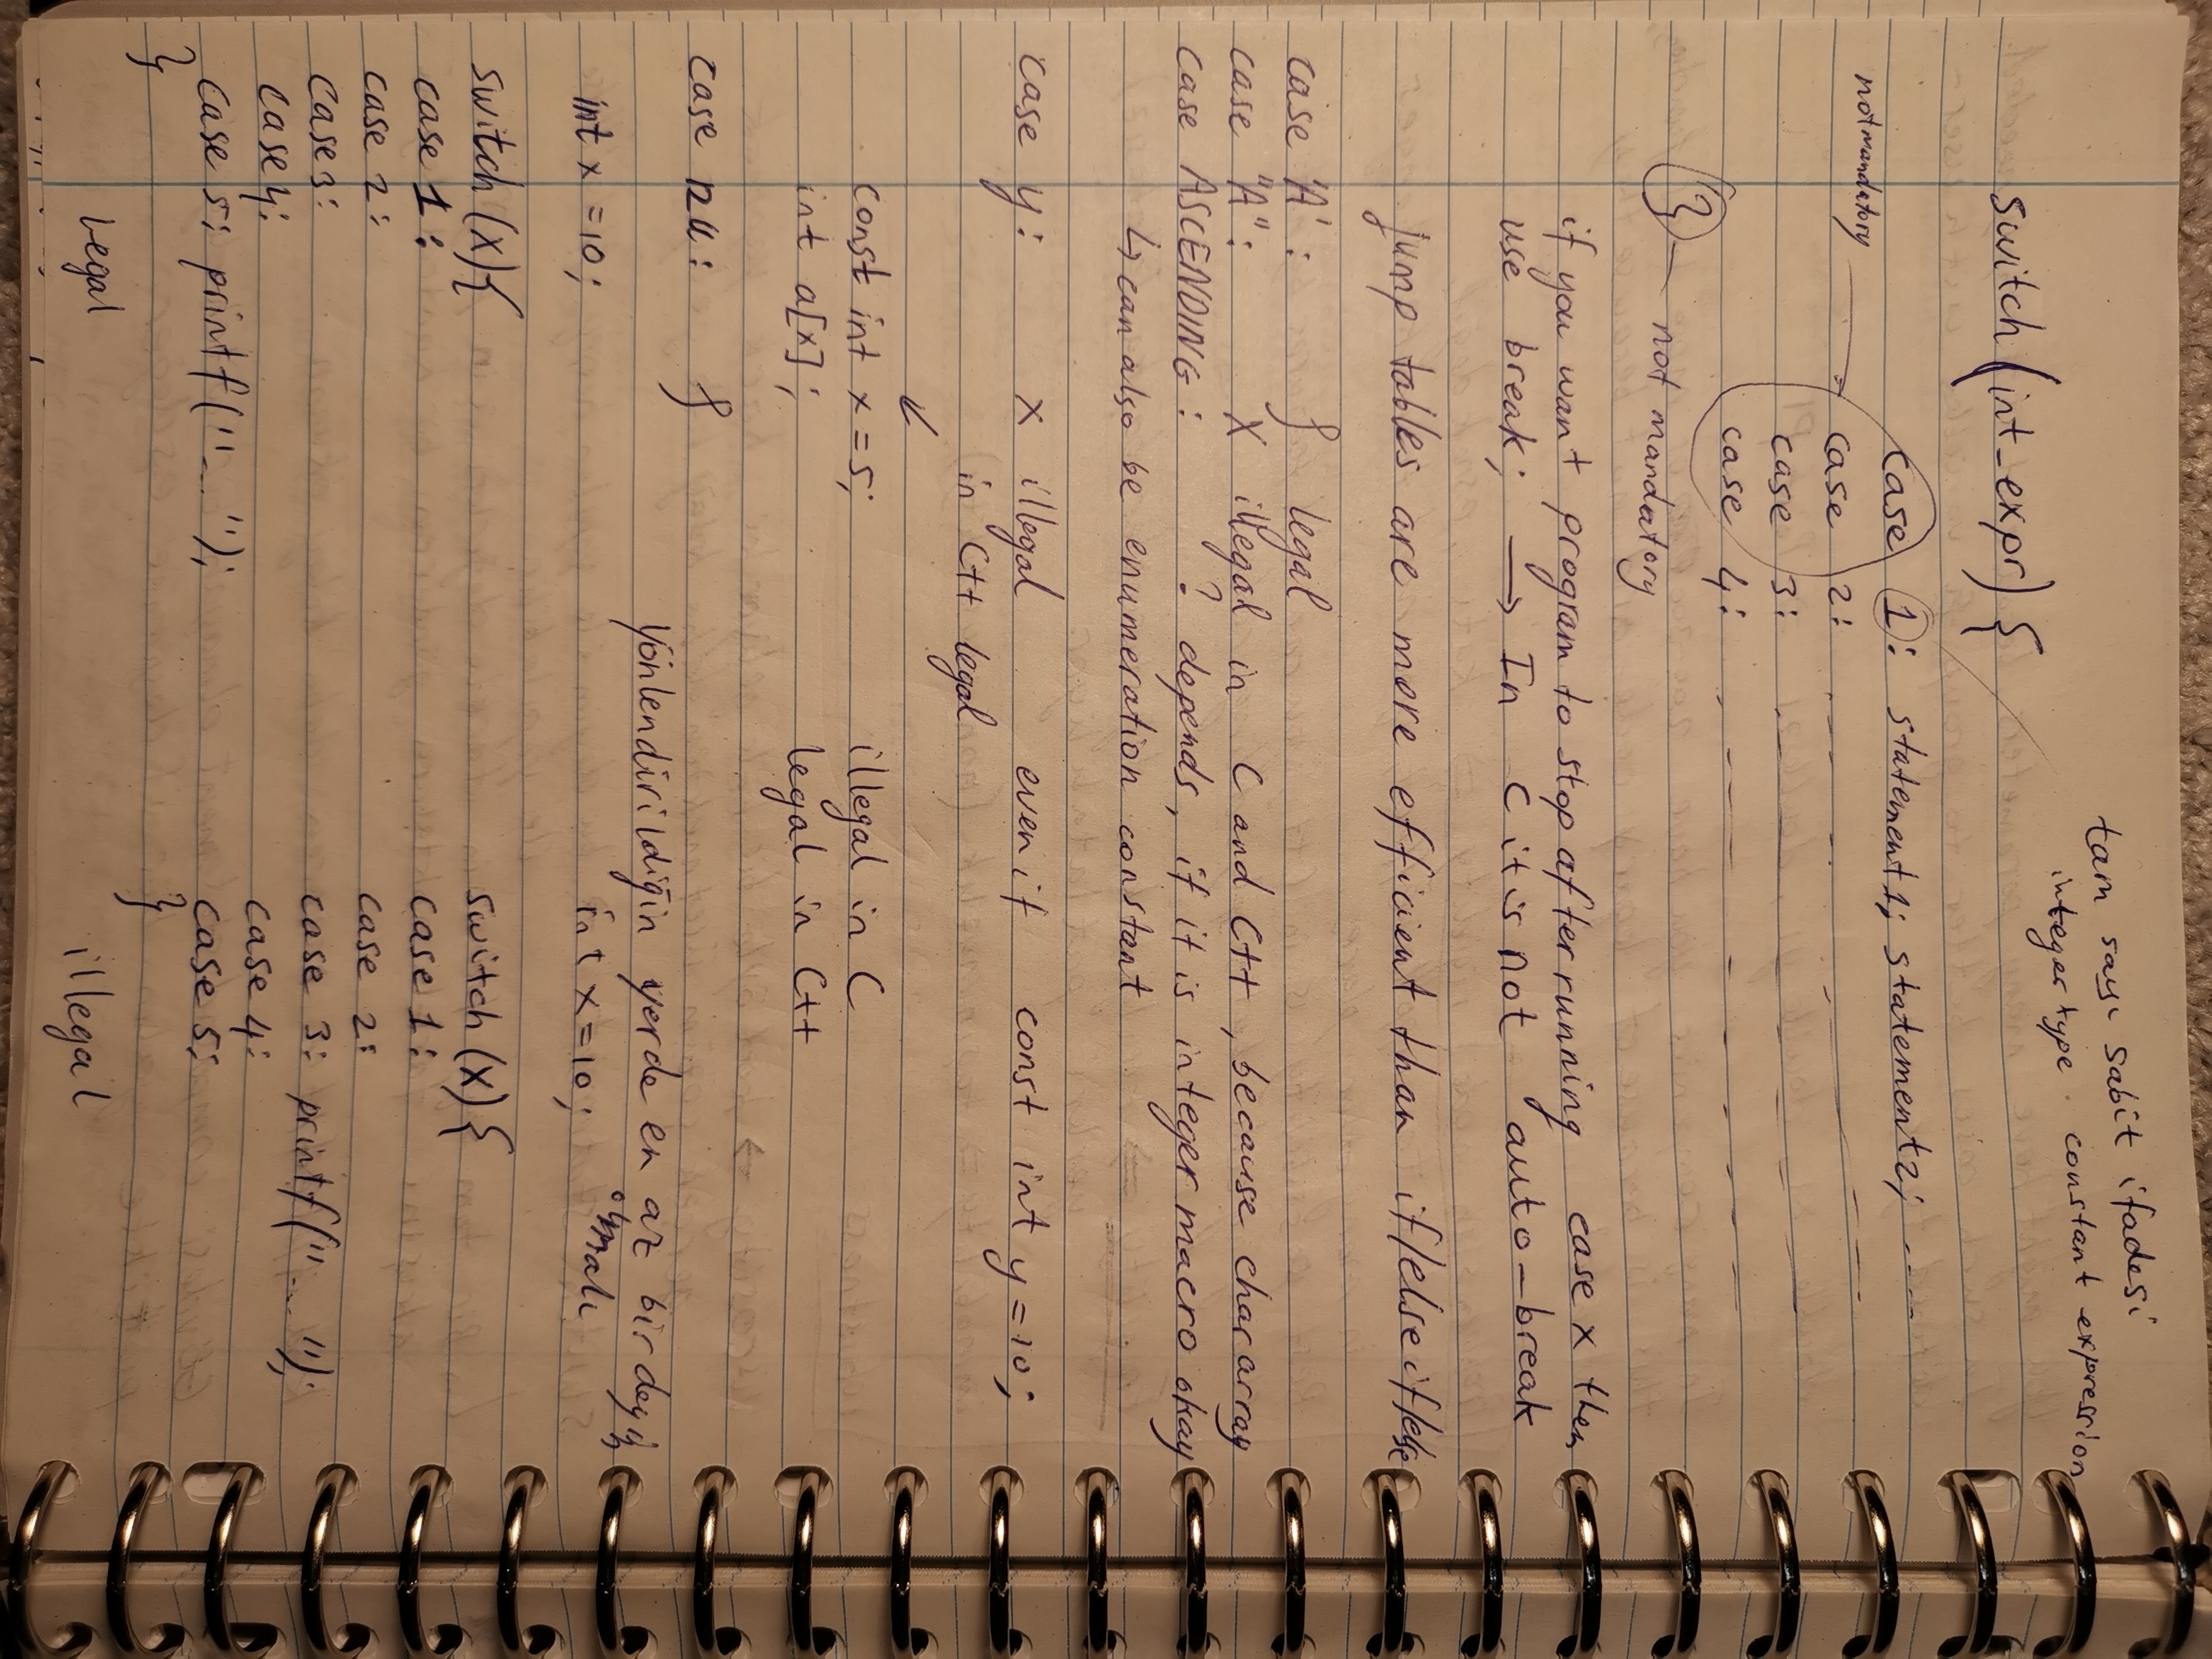 tam sayı sabit ifadesi
integer type constant expression
switch (int_expr) {
case 1: statement1; statement2; ----
not mandatory
case 2:
case 3:
case 4:
}
not mandatory
if you want program to stop after running case x then
use break; → In C it is not auto-break
jump tables are more efficient than if/else if/else
case 'A' : } legal
case "A": X illegal in C and C++, because char array
case ASCENDING : ? depends, if it is integer macro okay
↳ can also be enumeration constant
case y: X illegal even if const int y = 10;
in C++ legal
↙
const int x = 5; illegal in C
int a[x]; legal in C++
case 12u: }
Yönlendirildiğin yerde en az bir deyim
olmalı
int x = 10; int x = 10;
switch (x) { switch (x) {
case 1: case 1:
case 2: case 2:
case 3: case 3: printf("...");
case 4: case 4:
case 5: printf("..."); case 5:
} }
Legal illegal